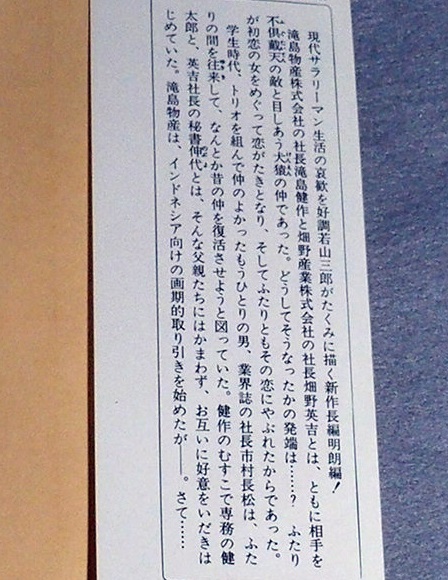 現代サラリーマン生活の哀歓を好調若山三郎がたくみに描く新作長編明朗編！
滝島物産株式会社の社長滝島健作と畑野産業株式会社の社長畑野英吉とは、ともに相手を
不倶戴天の敵と目しあう犬猿の仲であった。どうしてそうなったかの発端は……？　ふたり
が初恋の女をめぐって恋がたきとなり、そしてふたりともその恋にやぶれたからであった。
学生時代、トリオを組んで仲のよかったもうひとりの男、業界誌の社長市村長松は、ふた
りの間を往来して、なんとか昔の仲を復活させようと図っていた。健作のむすこで専務の健
太郎と、英吉社長の秘書伸代とは、そんな父親たちにはかまわず、お互いに好意をいだきは
じめていた。滝島物産は、インドネシア向けの画期的取り引きを始めたが――。さて……